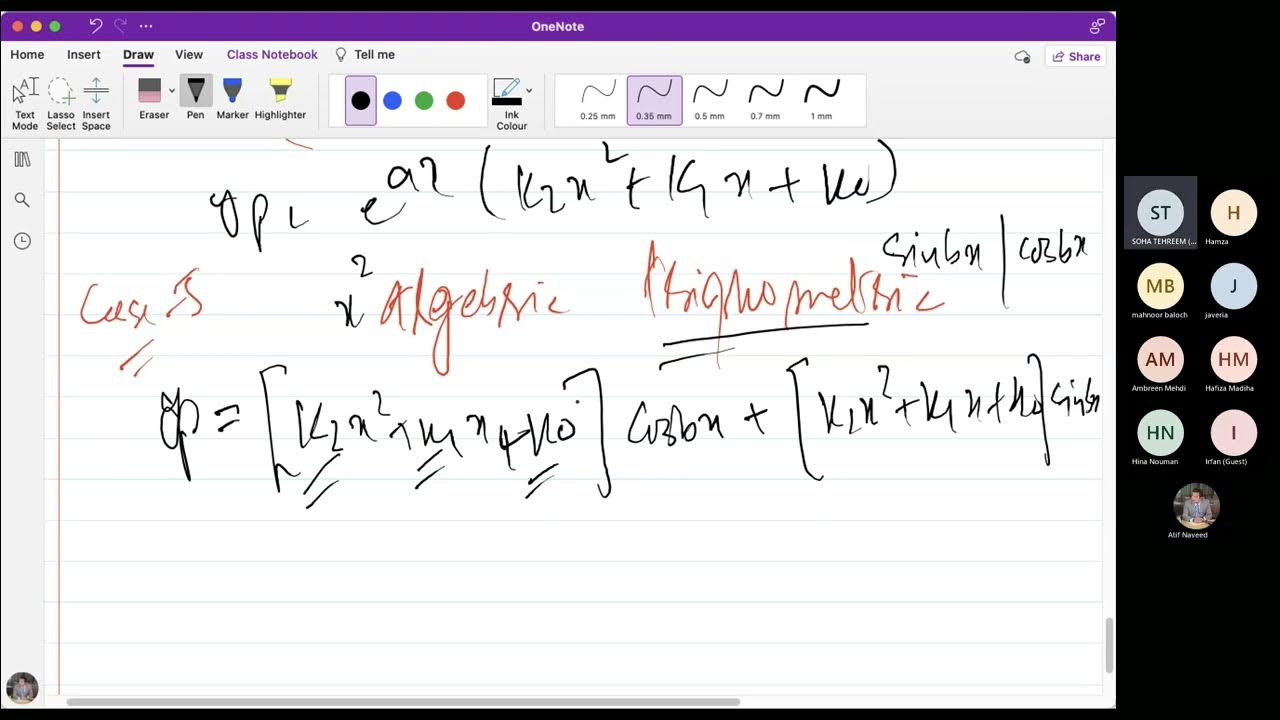 OneNote
Home Insert Draw View Class Notebook Tell me
Share
Text Mode
Lasso Select
Insert Space
Eraser
Pen
Marker
Highlighter
Ink Colour
0.25 mm
0.35 mm
0.5 mm
0.7 mm
1 mm
yp = e^ax (K2x² + K1x + K0)
sinbx | cosbx
Case 3 x² Algebric Trignometric
yp = [K2x² + K1x + K0] cosbx + [K2x² + K1x + K0] sinbx
ST
SOHA TEHREEM (...
H
Hamza
MB
mahnoor baloch
J
javeria
AM
Ambreen Mehdi
HM
Hafiza Madiha
HN
Hina Nouman
I
Irfan (Guest)
Atif Naveed